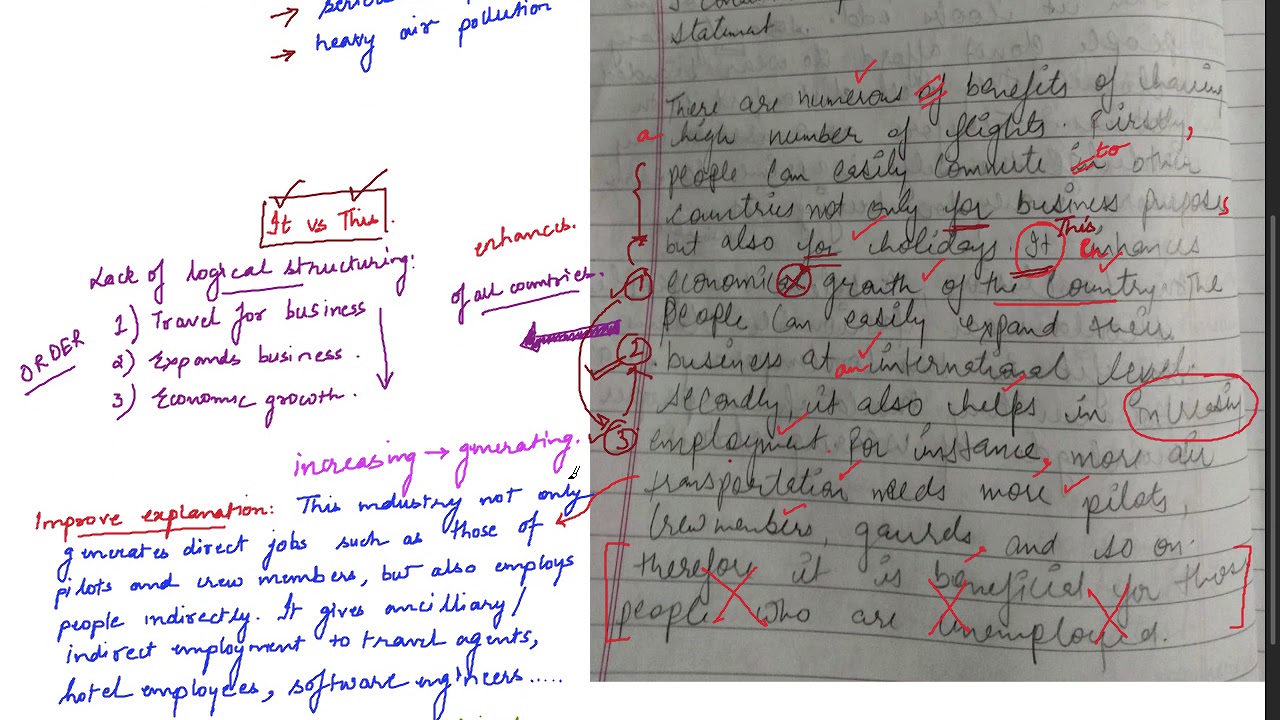 → serious
→ heavy air pollution
It vs This.
Lack of logical structuring:
ORDER
1) Travel for business
2) Expands business.
3) Economic growth.
enhances.
of all countries.
increasing → generating.
Improve explanation: This industry not only
generates direct jobs such as those of
pilots and crew members, but also employs
people indirectly. It gives ancilliary/
indirect employment to travel agents,
hotel employees, software engineers.....
statement.
There are numerous of benefits of having
a high number of flights. Firstly,
people can easily commute in to other
countries not only for business purposes
but also for holidays. It This, enhances
1 economical growth of the country. The
people can easily expand their
2 business at an international level.
Secondly, it also helps in increasing
3 employment. For instance, more air
transportation needs more pilots,
crew members, gaurds, and so on.
therefore it is beneficial for those
people who are unemployed.